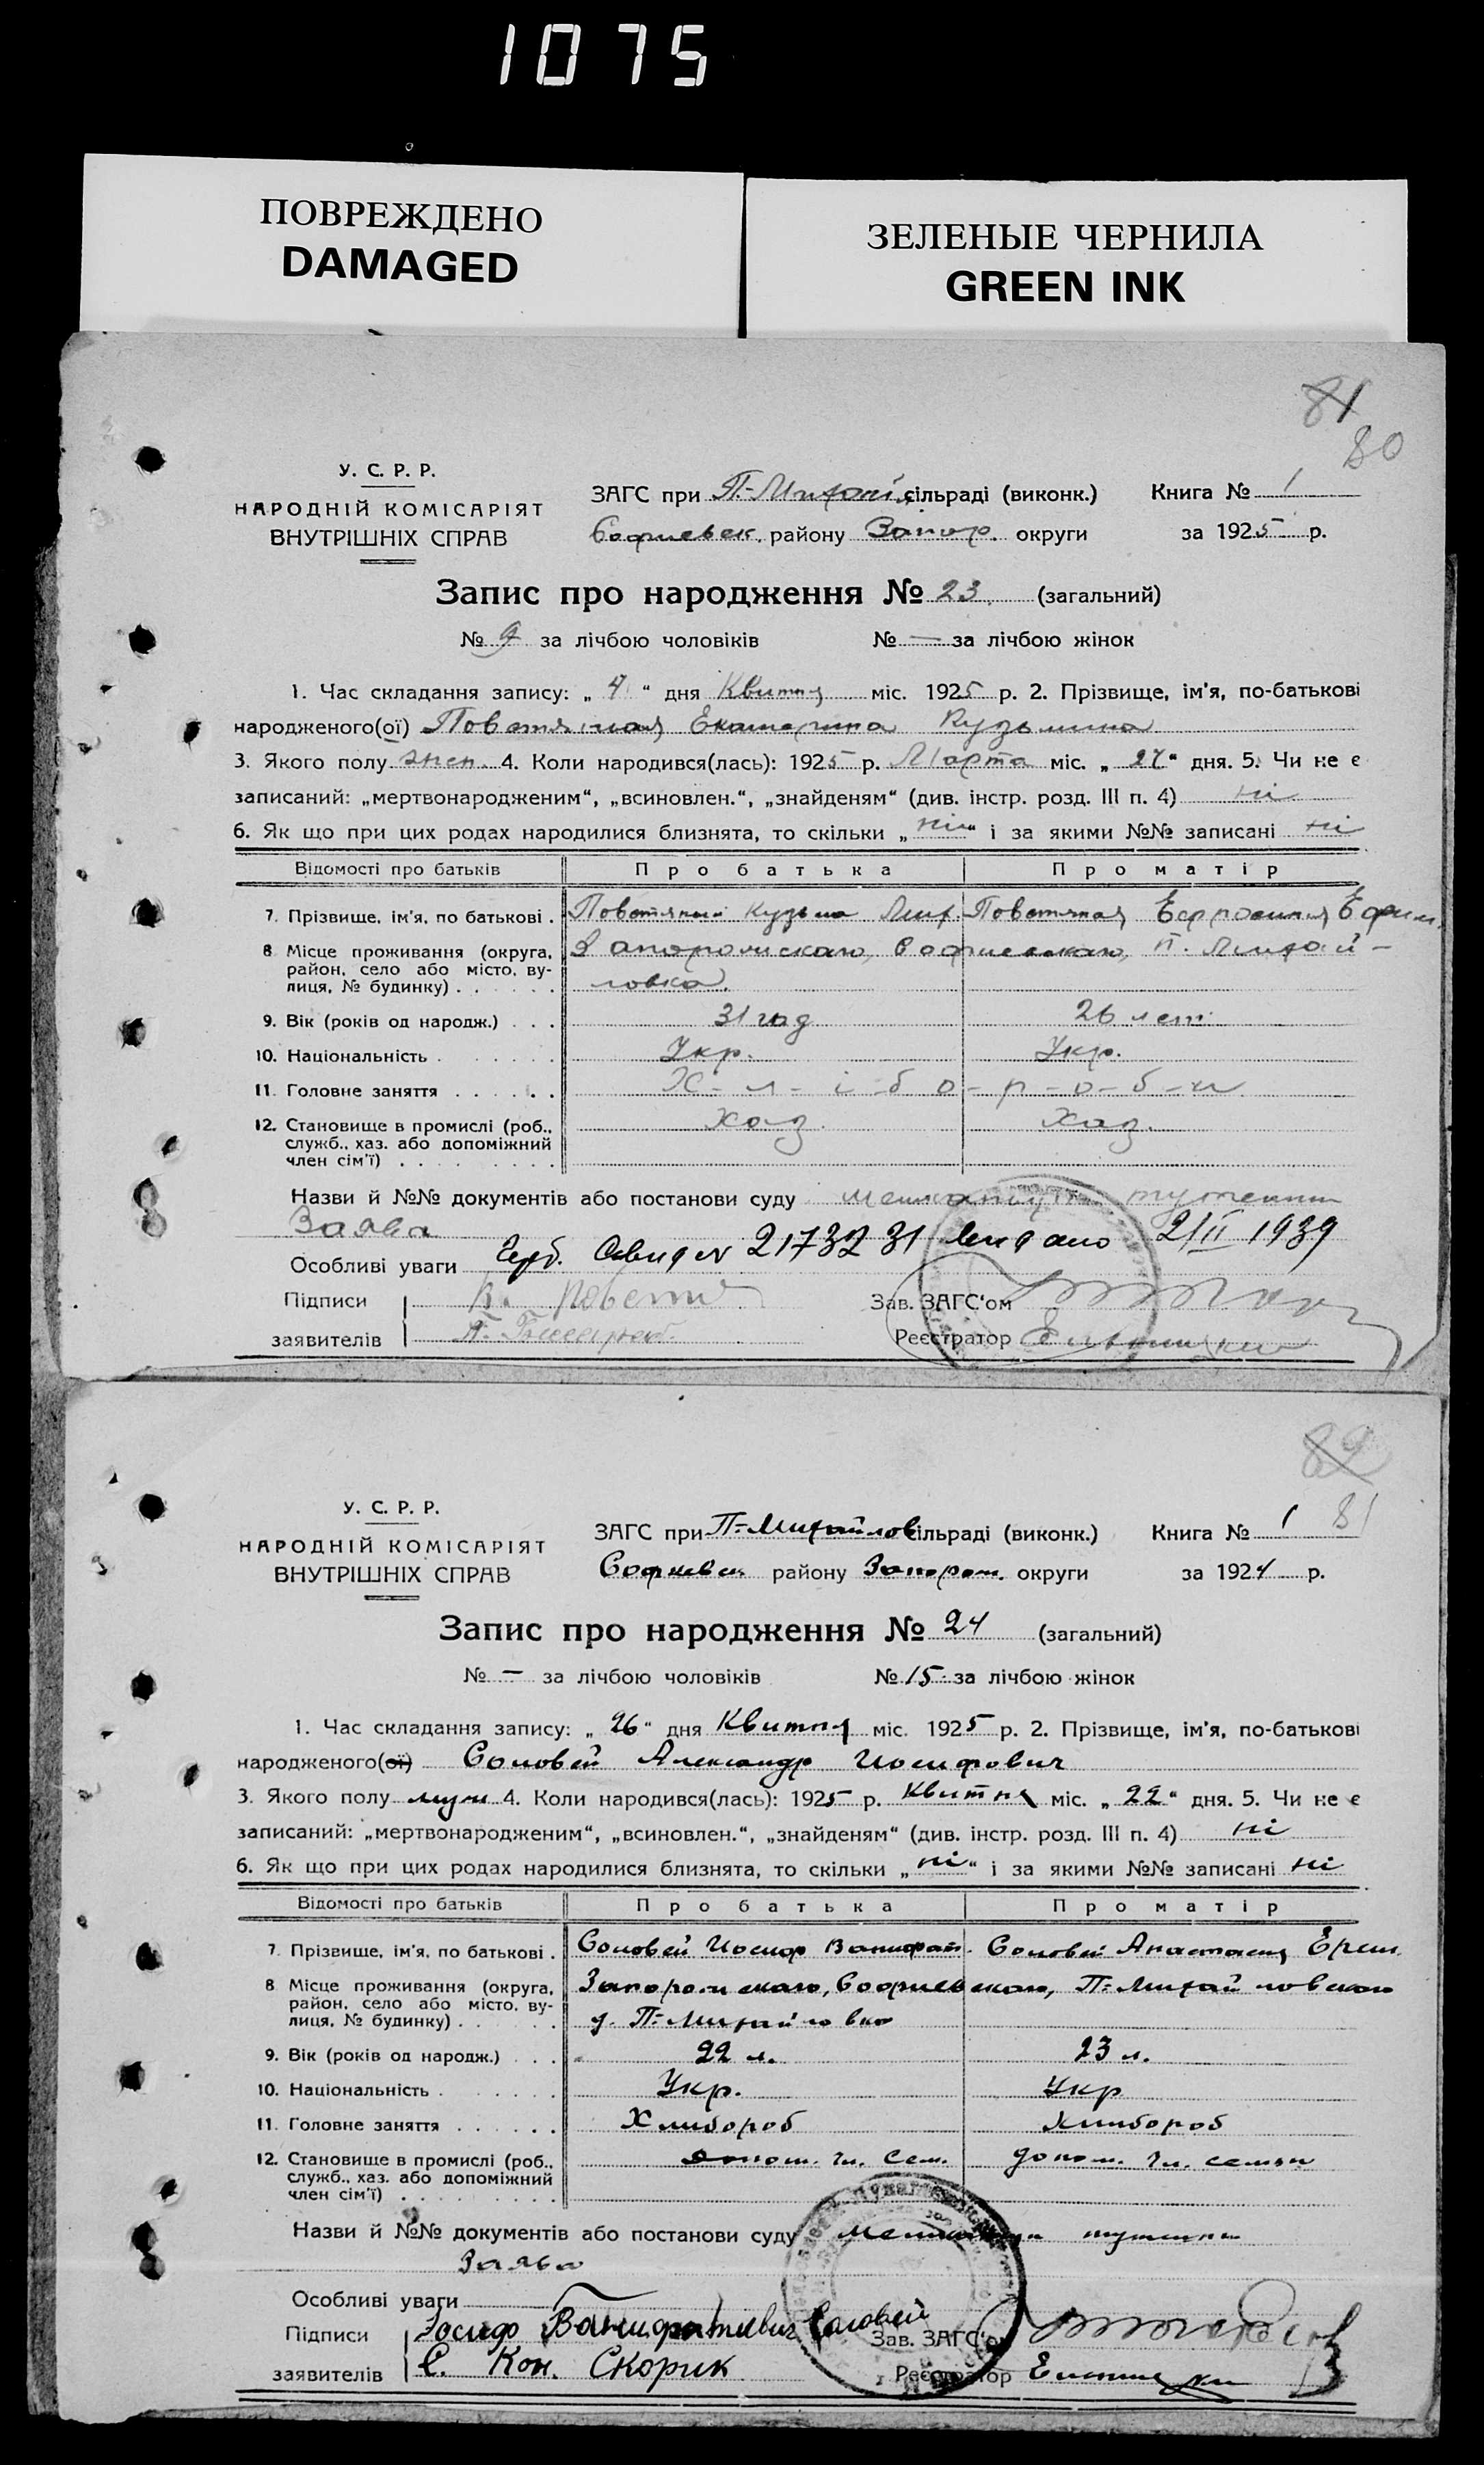 1075
ПОВРЕЖДЕНО
DAMAGED
ЗЕЛЕНЫЕ ЧЕРНИЛА
GREEN INK
81
80
У. С. Р. Р.
НАРОДНІЙ КОМІСАРІЯТ
ВНУТРІШНІХ СПРАВ
ЗАГС при П.-Михайл сільраді (виконк.)
Софиевск. району Запор. округи
Книга № 1
за 1925 р.
Запис про народження № 23 (загальний)
№ 9 за лічбою чоловіків № — за лічбою жінок
1. Час складання запису: „ 4 “ дня Квитня міс. 1925 р. 2. Прізвище, ім'я, по-батькові
народженого(ої) Повстяная Екатерина Кузьмина
3. Якого полу жен. 4. Коли народився(лась): 1925 р. Марта міс. „ 27 “ дня. 5. Чи не є
записаний: „мертвонародженим“, „всиновлен.“, „знайденям“ (див. інстр. розд. III п. 4) ні
6. Як що при цих родах народилися близнята, то скільки „ ні “ і за якими №№ записані ні
Відомості про батьків Про батька Про матір
7. Прізвище, ім'я, по батькові . Повстяный Кузьма Мих. Повстяная Ефросиния Ефим.
8 Місце проживання (округа, район, село або місто, вулиця, № будинку) . Запорожскаго, Софиевскаго, П. Михай-
ловка.
9. Вік (років од народж.) . . . 31 год 26 лет
10. Національність . Укр. Укр.
11. Головне заняття . Х-л-і-б о-р-о-б-и
12. Становище в промислі (роб., служб., хаз. або допоміжний член сім'ї) . Хаз. Хаз.
Назви й №№ документів або постанови суду тутешни
Заява
Особливі уваги Герб. Свид № 2173231 видано 21 II 1939
Підписи
заявителів
К. Повстя
П.
Зав. ЗАГС'ом
Реєстратор
82
81
У. С. Р. Р.
НАРОДНІЙ КОМІСАРІЯТ
ВНУТРІШНІХ СПРАВ
ЗАГС при П-Михайлов сільраді (виконк.)
Софиевск району Запорож. округи
Книга № 1
за 1924 р.
Запис про народження № 24 (загальний)
№ — за лічбою чоловіків № 15 за лічбою жінок
1. Час складання запису: „ 26 “ дня Квитня міс. 1925 р. 2. Прізвище, ім'я, по-батькові
народженого(ої) Соловей Александр Иосифович
3. Якого полу муж 4. Коли народився(лась): 1925 р. Квитня міс. „ 22 “ дня. 5. Чи не є
записаний: „мертвонародженим“, „всиновлен.“, „знайденям“ (див. інстр. розд. III п. 4) ні
6. Як що при цих родах народилися близнята, то скільки „ ні “ і за якими №№ записані ні
Відомості про батьків Про батька Про матір
7. Прізвище, ім'я, по батькові . Соловей Иосиф Ванифат. Соловей Анастасия Ерем.
8 Місце проживання (округа, район, село або місто, вулиця, № будинку) . Запорожскаго, Софиевскаго, П-Михайловскаго
д. П-Михайловка
9. Вік (років од народж.) . . . 22 л. 23 л.
10. Національність . Укр. Укр
11. Головне заняття . Хлибороб Хлибороб
12. Становище в промислі (роб., служб., хаз. або допоміжний член сім'ї) . допом. чл. сем. допом. чл. семьи
Назви й №№ документів або постанови суду тутешни
Заява
Особливі уваги
Підписи
заявителів
Иосиф Ванифатиевич Соловей
С. Кон. Скорик
Зав. ЗАГС'ом
Реєстратор